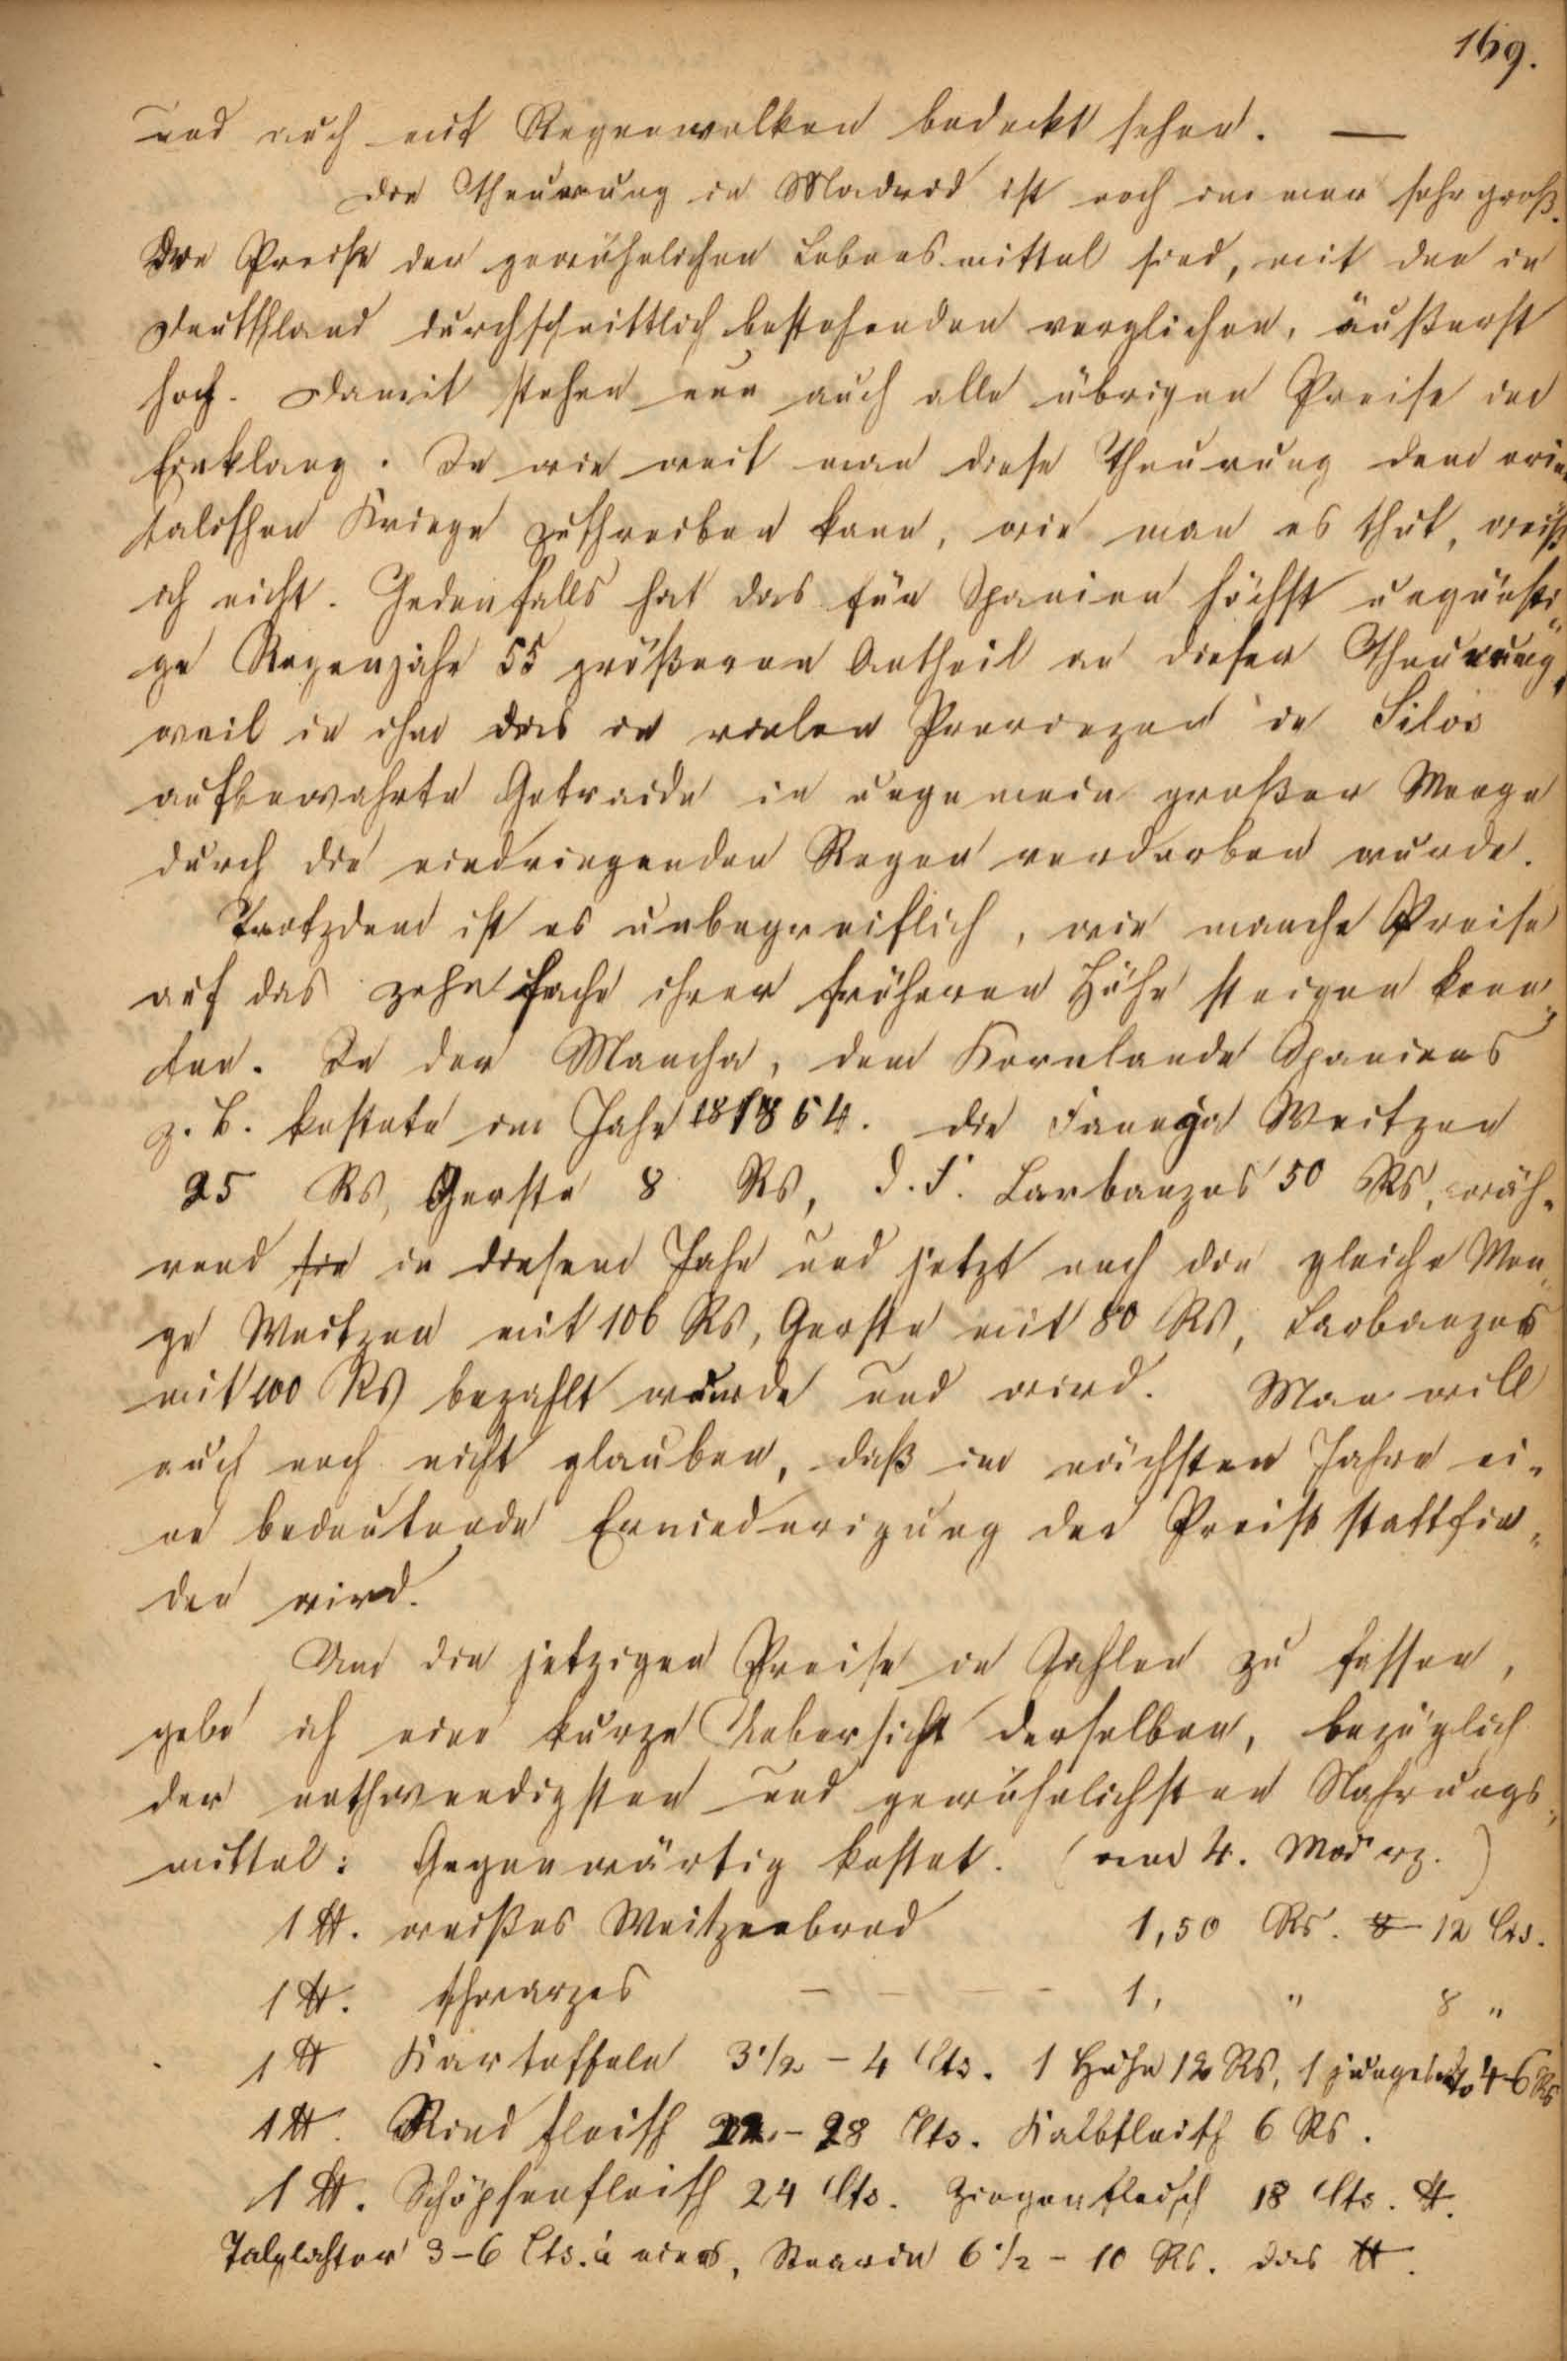 169.
und auch mit Regenwolken bedeckt sehen. —
Die Theuerung in Madrid ist noch immer sehr groß.
Die Preise der gewöhnlichen Lebensmittel sind, mit den in
Deutschland durchschnittlich bestehenden verglichen, äußerst
hoch. Damit stehen nun auch alle übrigen Preise im
Einklang. In wie weit man diese Theurung dem orien
talischen Kriege zuschreiben kann, wie man es thut, weiß
ich nicht. Jedenfalls hat das für Spanien höchst ungünsti-
ge Regenjahr 55 größeren Antheil an dieser Theurung,
weil in ihm das in vielen Provinzen in Silos
aufbewahrte Getraide in ungemein großer Menge
durch die eindringenden Regen verdorben wurde.
Trotzdem ist es unbegreiflich, wie manche Preise
auf das zehnfache ihrer früheren Höhe steigen konn-
ten. In der Mancha, dem Kornlande Spaniens
z. B. kostete im Jahr 1854. die Fanega Weitzen
25 Rs, Gerste 8 Rs, d. F. Garbanzos 50 Rs, wäh-
rend sie in diesem Jahr und jetzt noch die gleiche Men-
ge Weitzen mit 106 Rs, Gerste mit 80 Rs, Garbanzos
mit 200 Rs bezahlt wurde und wird. Man will
auch noch nicht glauben, daß im nächsten Jahre ei-
ne bedeutende Erniederigung der Preise stattfin-
den wird.
Um die jetzigen Preise in Zahlen zu fassen,
gebe ich eine kurze Uebersicht derselben, bezüglich
der nothwendigsten und gewöhnlichsten Nahrungs-
mittel: Gegenwärtig kostet. (am 4. März.)
1 ℔. weißes Weitzenbrod 1,50 Rs. 12 Cts.
1 ℔. schwarzes — — — — 1, " 8 "
1 ℔ Kartoffeln 3 1/2 – 4 Cts. 1 Huhn 12 Rs, 1 junges do 4-6 Rs
1 ℔. Rindfleisch 22 – 28 Cts. Kalbfleisch 6 Rs.
1 ℔. Schöpsenfleisch 24 Cts. Ziegenfleisch 18 Cts. ℔.
Talglichter 3–6 Cts. à eines, Stearin 6 1/2 – 10 Rs. das ℔.